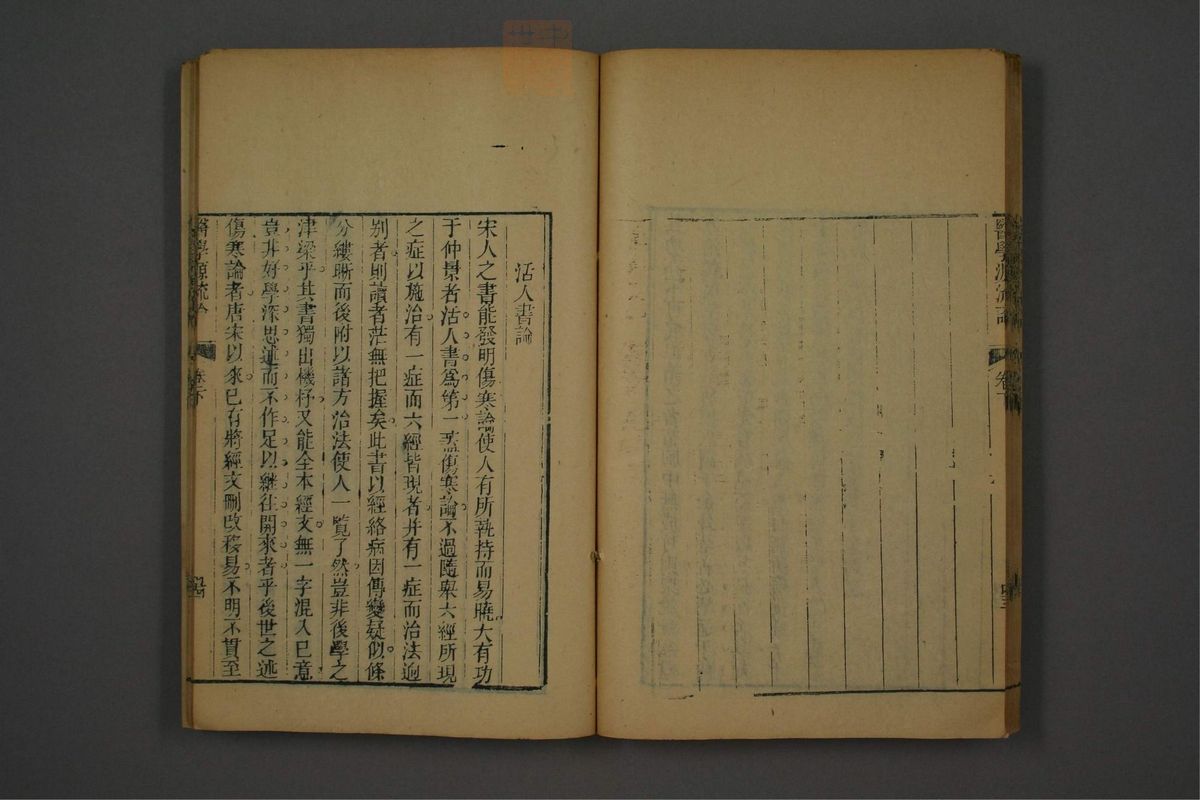 醫學源流論
卷下
活人書論
宋人之書能發明傷寒論使人有所執持而易曉大有功
于仲景者活人書為第一蓋傷寒論不過隨舉六經所現
之症以施治有一症而六經皆現者并有一症而治法迥
别者則讀者茫無把握矣此書以經絡病因傳變疑似條
分縷晰而後附以諸方治法使人一覧了然豈非後學之
津梁乎其書獨出機杼又能全本經文無一字混入已意
豈非好學深思述而不作足以繼往開來者乎後世之述
傷寒論者唐宋以來已有將經文刪改移易不明不貫至
醫學源流論
卷下